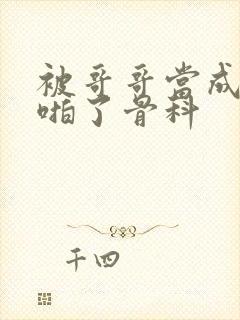 被哥哥當成
啪了骨科
千四